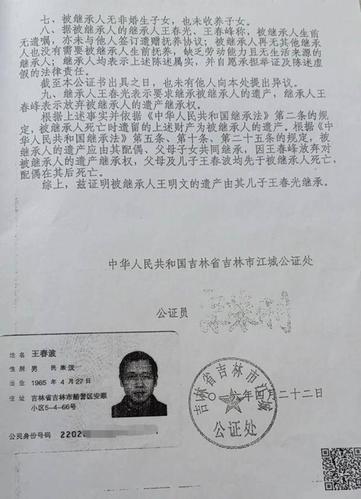 七、被继承人无非婚生子女，也未收养子女。
八、据被继承人的王春光、王春峰称，被继承人生前
无遗嘱，亦未与他人签订遗赠抚养协议；被继承人再无其他继承
人也没有需要被继承人生前抚养，缺乏劳动能力且无生活来源的
继承人；继承人均表示上述陈述属实，并自愿承担举证及陈述虚
假的法律责任。
截至本公证书出具之日，也未有他人向本处提出异议。
九、继承人王春光表示要求继承被继承人的遗产，继承人王
春峰表示放弃被继承人的遗产继承权。
根据上述事实并依据《中华人民共和国继承法》第二条的规
定，被继承人死亡时遗留的上述财产为被继承人的遗产。根据《中
华人民共和国继承法》第五条、第十条、第二十五条的规定，被
继承人的遗产应由其配偶、父母子女共同继承，因王春峰放弃对
被继承人的遗产继承权，父母及儿子王春波均先于被继承人死亡，
配偶在其后死亡。
综上，兹证明被继承人王明文的遗产由其儿子王春光继承。
中华人民共和国吉林省吉林市江城公证处
公证员
年四月二十二日
吉林省吉林市江城
公证处
姓名 王春波
性别 男 民族汉
出生 1965 年 4 月 27 日
住址 吉林省吉林市船营区安顺
小区5-4-66号
公民身份号码 2202